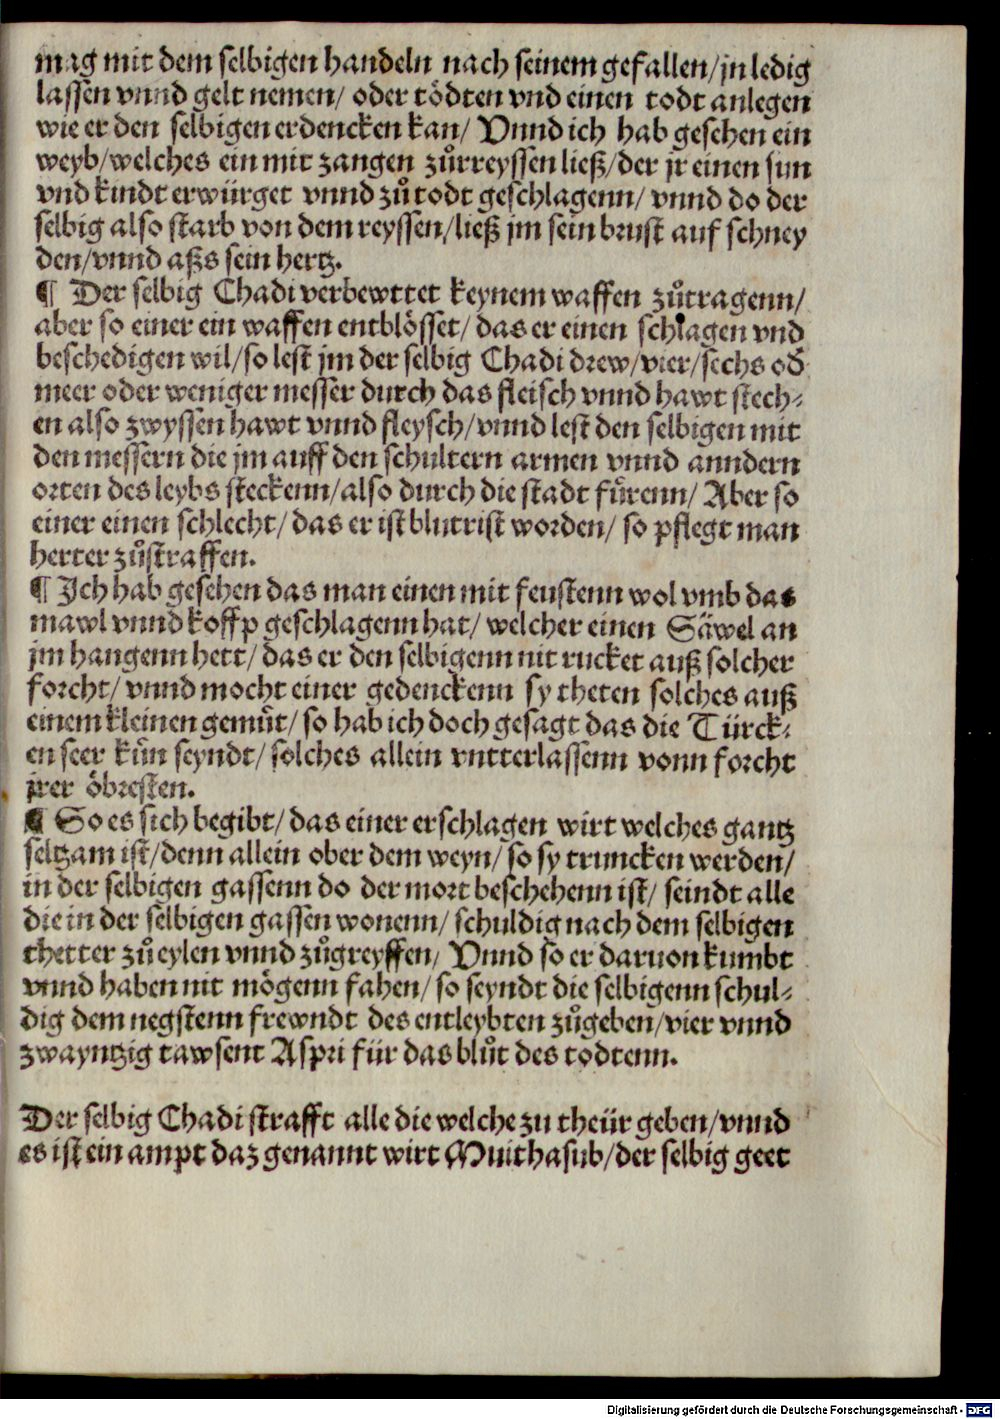 mag mit dem selbigen handeln nach seinem gefallen/jn ledig
lassen vnnd gelt nemen/ oder tödten vnd einen todt anlegen
wie er den selbigen erdencken kan/ Vnnd ich hab gesehen ein
weyb/welches ein mit zangen zůrreyssen ließ/der jr einen sun
vnd kindt erwürget vnnd zů todt geschlagenn/ vnnd do der
selbig also starb von dem reyssen/ließ jm sein brust auf schney
den/vnnd aßs sein hertz.
¶ Der selbig Chadi verbewttet keynem waffen zůtragenn/
aber so einer ein waffen entblösset/ das er einen schlagen vnd
beschedigen wil/so lest jm der selbig Chadi drew/vier/sechs od̄
meer oder weniger messer durch das fleisch vnnd hawt stech⸗
en also zwyssen hawt vnnd fleysch/vnnd lest den selbigen mit
den messern die jm auff den schultern armen vnnd anndern
orten des leybs steckenn/also durch die stadt fürenn/ Aber so
einer einen schlecht/ das er ist blutrist worden/ so pflegt man
herter zůstraffen.
¶ Ich hab gesehen das man einen mit feustenn wol vmb das
mawl vnnd koffp geschlagenn hat/ welcher einen Säwel an
jm hangenn hett/ das er den selbigenn nit rucket auß solcher
forcht/ vnnd mocht einer gedenckenn sy theten solches auß
einem kleinen gemůt/ so hab ich doch gesagt das die Türck⸗
en seer kůn seyndt/ solches allein vntterlassenn vonn forcht
jrer öbresten.
¶ So es sich begibt/ das einer erschlagen wirt welches gantz
seltzam ist/denn allein ober dem weyn/ so sy truncken werden/
in der selbigen gassenn do der mort beschehenn ist/ seindt alle
die in der selbigen gassen wonenn/ schuldig nach dem selbigen
thetter zů eylen vnnd zůgreyffen/ Vnnd so er daruon kumbt
vnnd haben nit mögenn fahen/ so seyndt die selbigenn schul⸗
dig dem negstenn frewndt des entleybten zůgeben/vier vnnd
zwayntzig tawsent Aspri für das blůt des todtenn.
Der selbig Chadi strafft alle die welche zu theür geben/vnnd
es ist ein ampt daz genannt wirt Muithasub/der selbig geet
Digitalisierung gefördert durch die Deutsche Forschungsgemeinschaft - DFG